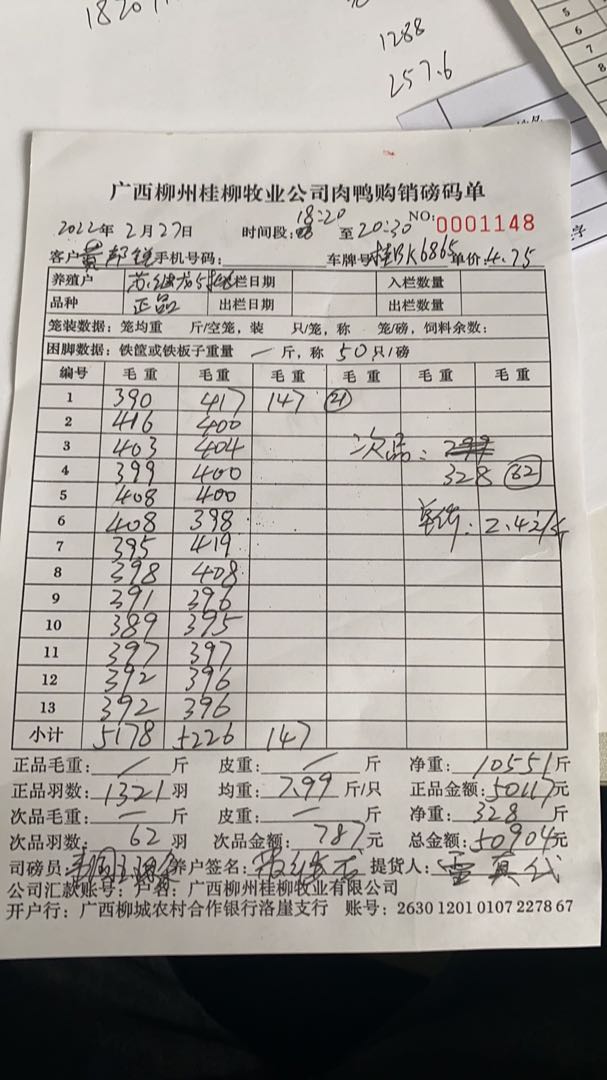 1288
257.6
5
6
7
8
广西柳州桂柳牧业公司肉鸭购销磅码单
2022年 2月27日 时间段: 18:20 至 20:30 NO: 0001148
客户 手机号码: 车牌号: 桂BK6865 单价: 4.75
养殖户 入栏日期 入栏数量
品种 正品 出栏日期 出栏数量
笼装数据: 笼均重 斤/空笼, 装 只/笼, 称 笼/磅, 饲料余数:
困脚数据: 铁筐或铁板子重量 一 斤, 称 50只/磅
编号 毛重 毛重 毛重 毛重 毛重 毛重
1 390 417 147 21
2 416 400
3 403 404 次品:
4 399 400 328 62
5 408 400
6 408 398 单价: 2.4元/斤
7 395 419
8 398 408
9 391 396
10 389 395
11 397 397
12 392 396
13 392 396
小计 5178 5226 147
正品毛重: / 斤 皮重: / 斤 净重: 10551斤
正品羽数: 1321羽 均重: 7.99 斤/只 正品金额: 50117元
次品毛重: 一 斤 皮重: 一 斤 净重: 328 斤
次品羽数: 62 羽 次品金额: 787 元 总金额: 50904元
司磅员: 养户签名: 提货人:
公司汇款账号: 户名: 广西柳州桂柳牧业有限公司
开户行: 广西柳城农村合作银行洛崖支行 账号: 2630 1201 0107 2278 67